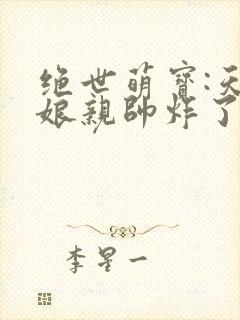 绝世萌寶:天
娘親帥炸了
李星一